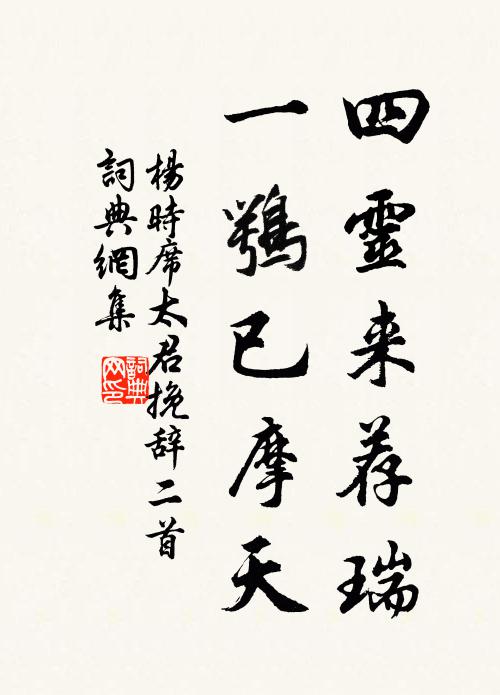 四靈来荐瑞
一鶚已摩天
楊時席太君挽辞二首
詞典網集
詞典
网印